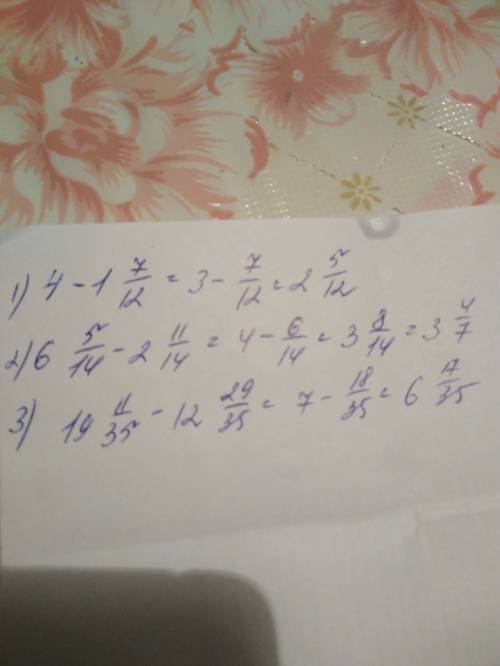 1) 4 - 1 7/12 = 3 - 7/12 = 2 5/12
2) 6 5/14 - 2 11/14 = 4 - 6/14 = 3 8/14 = 3 4/7
3) 19 11/35 - 12 29/35 = 7 - 18/35 = 6 17/35